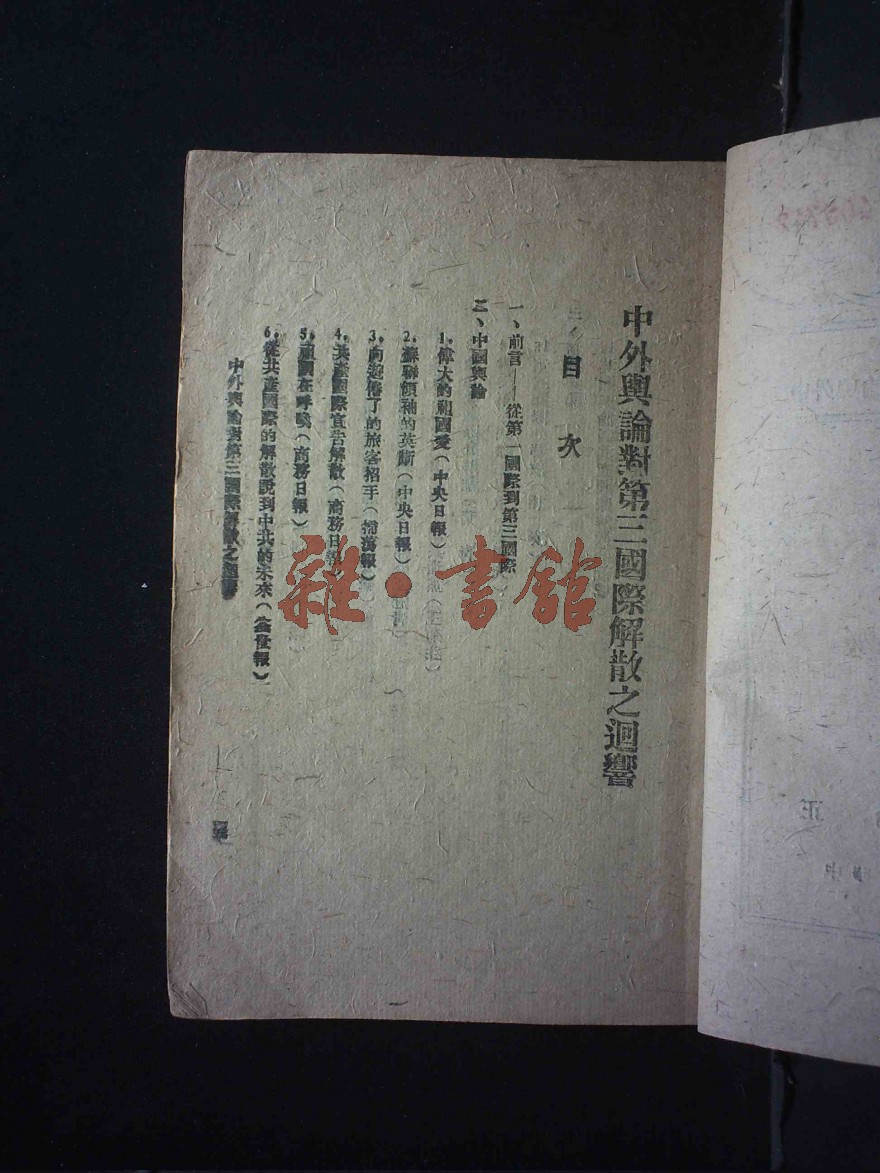 中外輿論對第三國際解散之迴響
目次
一、前言——從第一國際到第三國際
二、中國輿論
1.偉大的祖國愛(中央日報)
2.蘇聯領袖的英斷(中央日報)
3.向遊倦了的旅客招手(掃蕩報)
4.共產國際宣告解散(商務日報)
5.祖國在呼喚(商務日報)
6.從共產國際的解散說到中共的未來(益世報)
中外輿論對第三國際解散之迴響
雜·書館